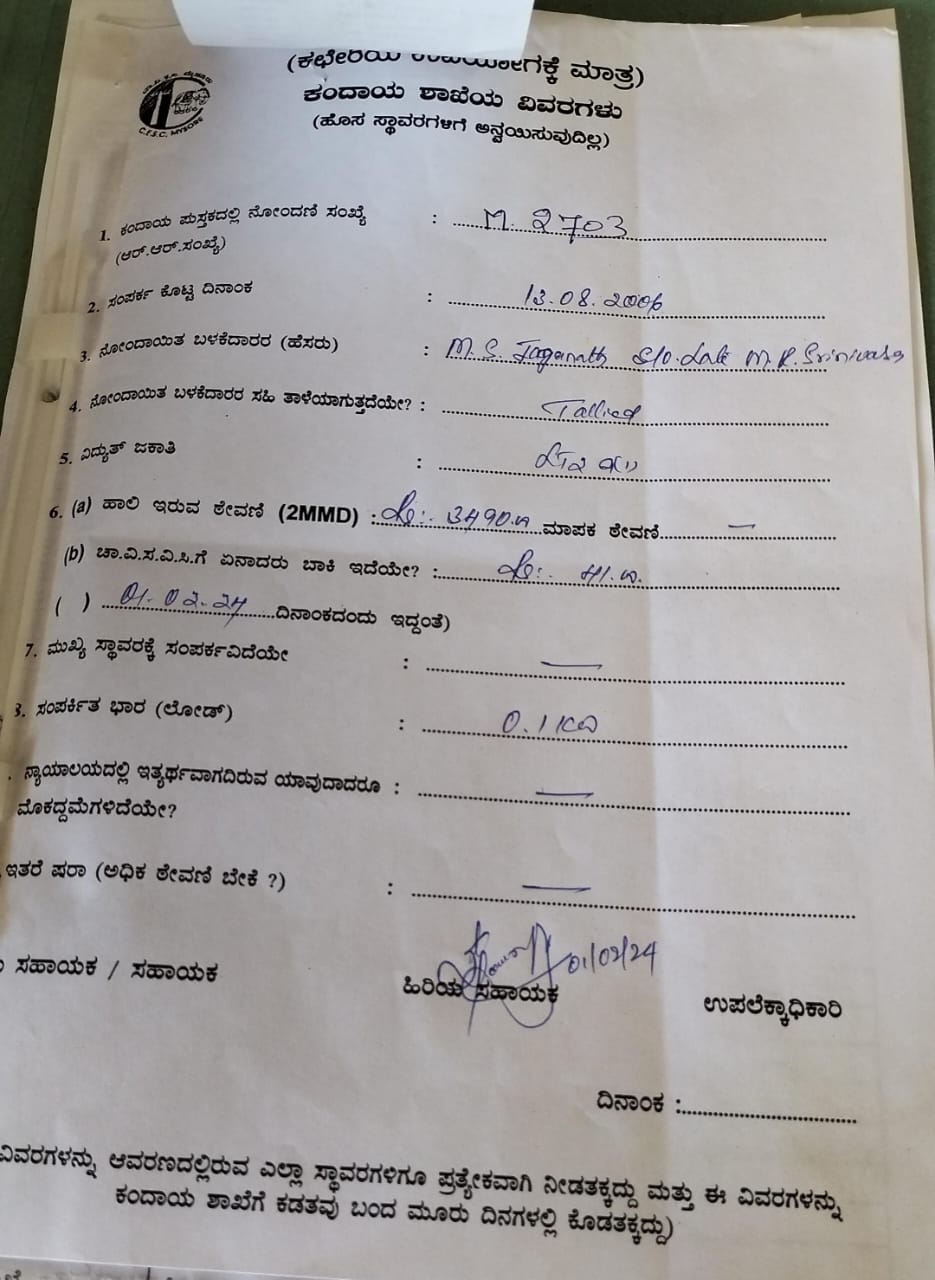 (ಕಛೇರಿಯ ಉಪಯೋಗಕ್ಕೆ ಮಾತ್ರ)
ಕಂದಾಯ ಶಾಖೆಯ ವಿವರಗಳು
(ಹೊಸ ಸ್ಥಾವರಗಳಿಗೆ ಅನ್ವಯಿಸುವುದಿಲ್ಲ)
C.E.S.C. MYSORE
1. ಕಂದಾಯ ಪುಸ್ತಕದಲ್ಲಿ ನೋಂದಣಿ ಸಂಖ್ಯೆ : M. 2703
(ಆರ್.ಆರ್.ಸಂಖ್ಯೆ)
2. ಸಂಪರ್ಕ ಕೊಟ್ಟ ದಿನಾಂಕ : 13.08.2006
3. ನೋಂದಾಯಿತ ಬಳಕೆದಾರರ (ಹೆಸರು) : M. S. Jaganath S/o. Late M. R. Srinivasa
4. ನೋಂದಾಯಿತ ಬಳಕೆದಾರರ ಸಹಿ ತಾಳೆಯಾಗುತ್ತದೆಯೇ? : Tallied
5. ವಿದ್ಯುತ್ ಜಕಾತಿ :
6. (a) ಹಾಲಿ ಇರುವ ಠೇವಣಿ (2MMD) : ಮಾಪಕ ಠೇವಣಿ —
(b) ಚಾ.ವಿ.ಸ.ವಿ.ಸಿ.ಗೆ ಏನಾದರು ಬಾಕಿ ಇದೆಯೇ? :
( ) 01.02.24 ದಿನಾಂಕದಂದು ಇದ್ದಂತೆ)
7. ಮುಖ್ಯ ಸ್ಥಾವರಕ್ಕೆ ಸಂಪರ್ಕವಿದೆಯೇ : —
8. ಸಂಪರ್ಕಿತ ಭಾರ (ಲೋಡ್) : 0.1 KW
. ನ್ಯಾಯಾಲಯದಲ್ಲಿ ಇತ್ಯರ್ಥವಾಗದಿರುವ ಯಾವುದಾದರೂ : —
ಮೊಕದ್ದಮೆಗಳಿದೆಯೇ?
ಇತರೆ ಷರಾ (ಅಧಿಕ ಠೇವಣಿ ಬೇಕೆ ?) : —
01/02/24
ಸಹಾಯಕ / ಸಹಾಯಕ ಹಿರಿಯ ಸಹಾಯಕ ಉಪಲೆಕ್ಕಾಧಿಕಾರಿ
ದಿನಾಂಕ :
ವಿವರಗಳನ್ನು ಆವರಣದಲ್ಲಿರುವ ಎಲ್ಲಾ ಸ್ಥಾವರಗಳಿಗೂ ಪ್ರತ್ಯೇಕವಾಗಿ ನೀಡತಕ್ಕದ್ದು ಮತ್ತು ಈ ವಿವರಗಳನ್ನು
ಕಂದಾಯ ಶಾಖೆಗೆ ಕಡತವು ಬಂದ ಮೂರು ದಿನಗಳಲ್ಲಿ ಕೊಡತಕ್ಕದ್ದು)